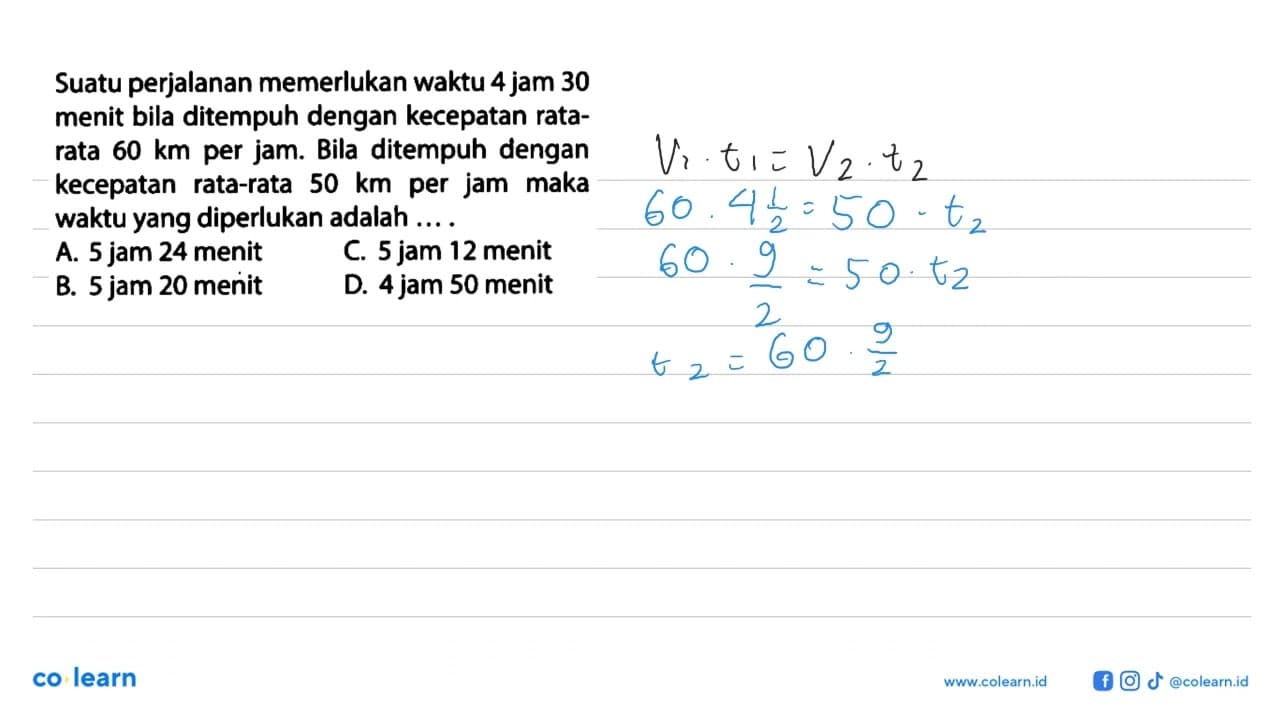 Suatu perjalanan memerlukan waktu 4 jam 30
menit bila ditempuh dengan kecepatan rata-
rata 60 km per jam. Bila ditempuh dengan
kecepatan rata-rata 50 km per jam maka
waktu yang diperlukan adalah ....
A. 5 jam 24 menit C. 5 jam 12 menit
B. 5 jam 20 menit D. 4 jam 50 menit
V₁ . t₁ = V₂ . t₂
60 . 4 1/2 = 50 . t₂
60 . 9/2 = 50 . t₂
t₂ = 60 . 9/2
co learn
www.colearn.id @colearn.id